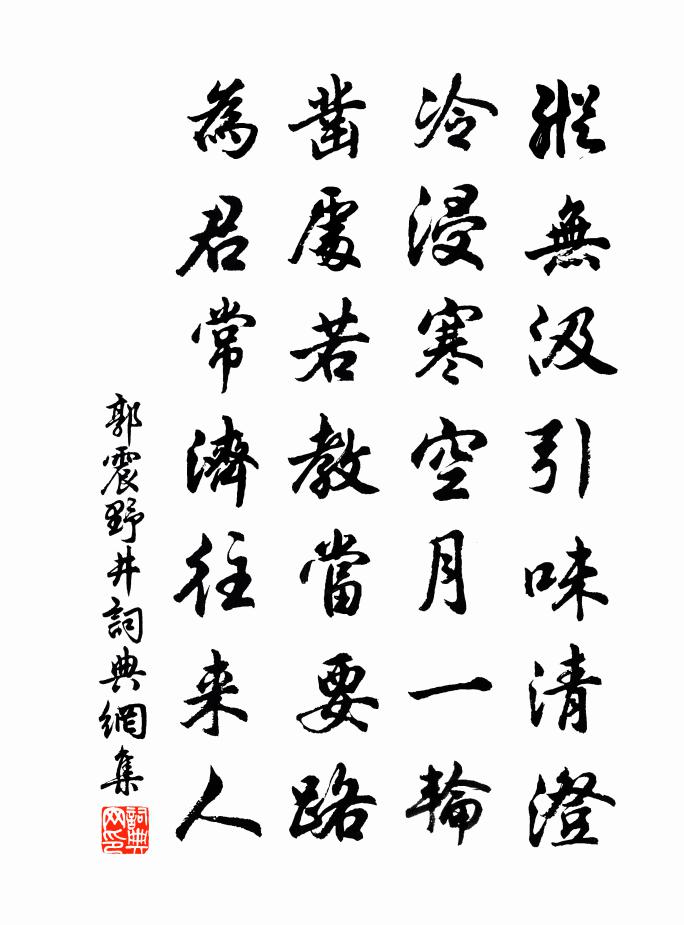 縱無汲引味清澄
冷浸寒空月一輪
鑿處若教當要路
為君常濟往来人
郭震野井詞典網集
詞典网印